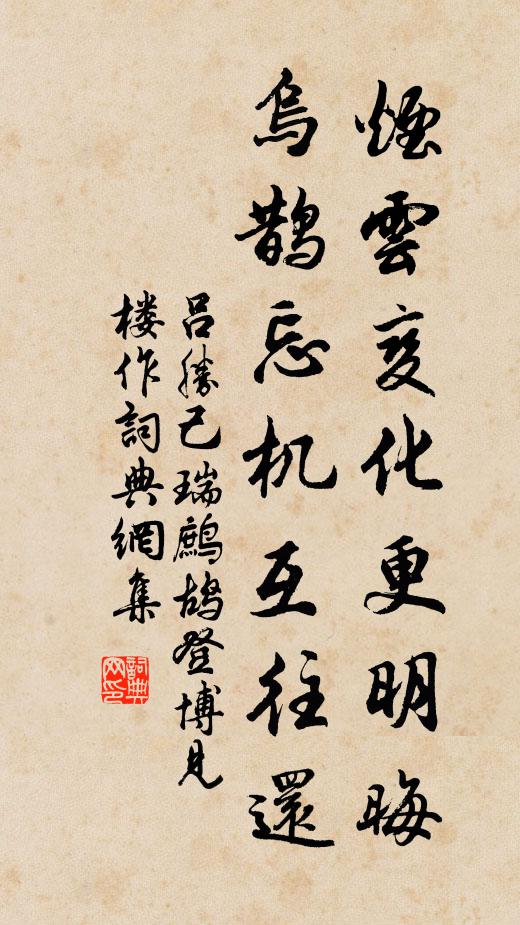 煙雲变化更明晦
烏鵲忘机互往還
吕勝己瑞鷓鴣登博見
楼作詞典網集
詞典网印